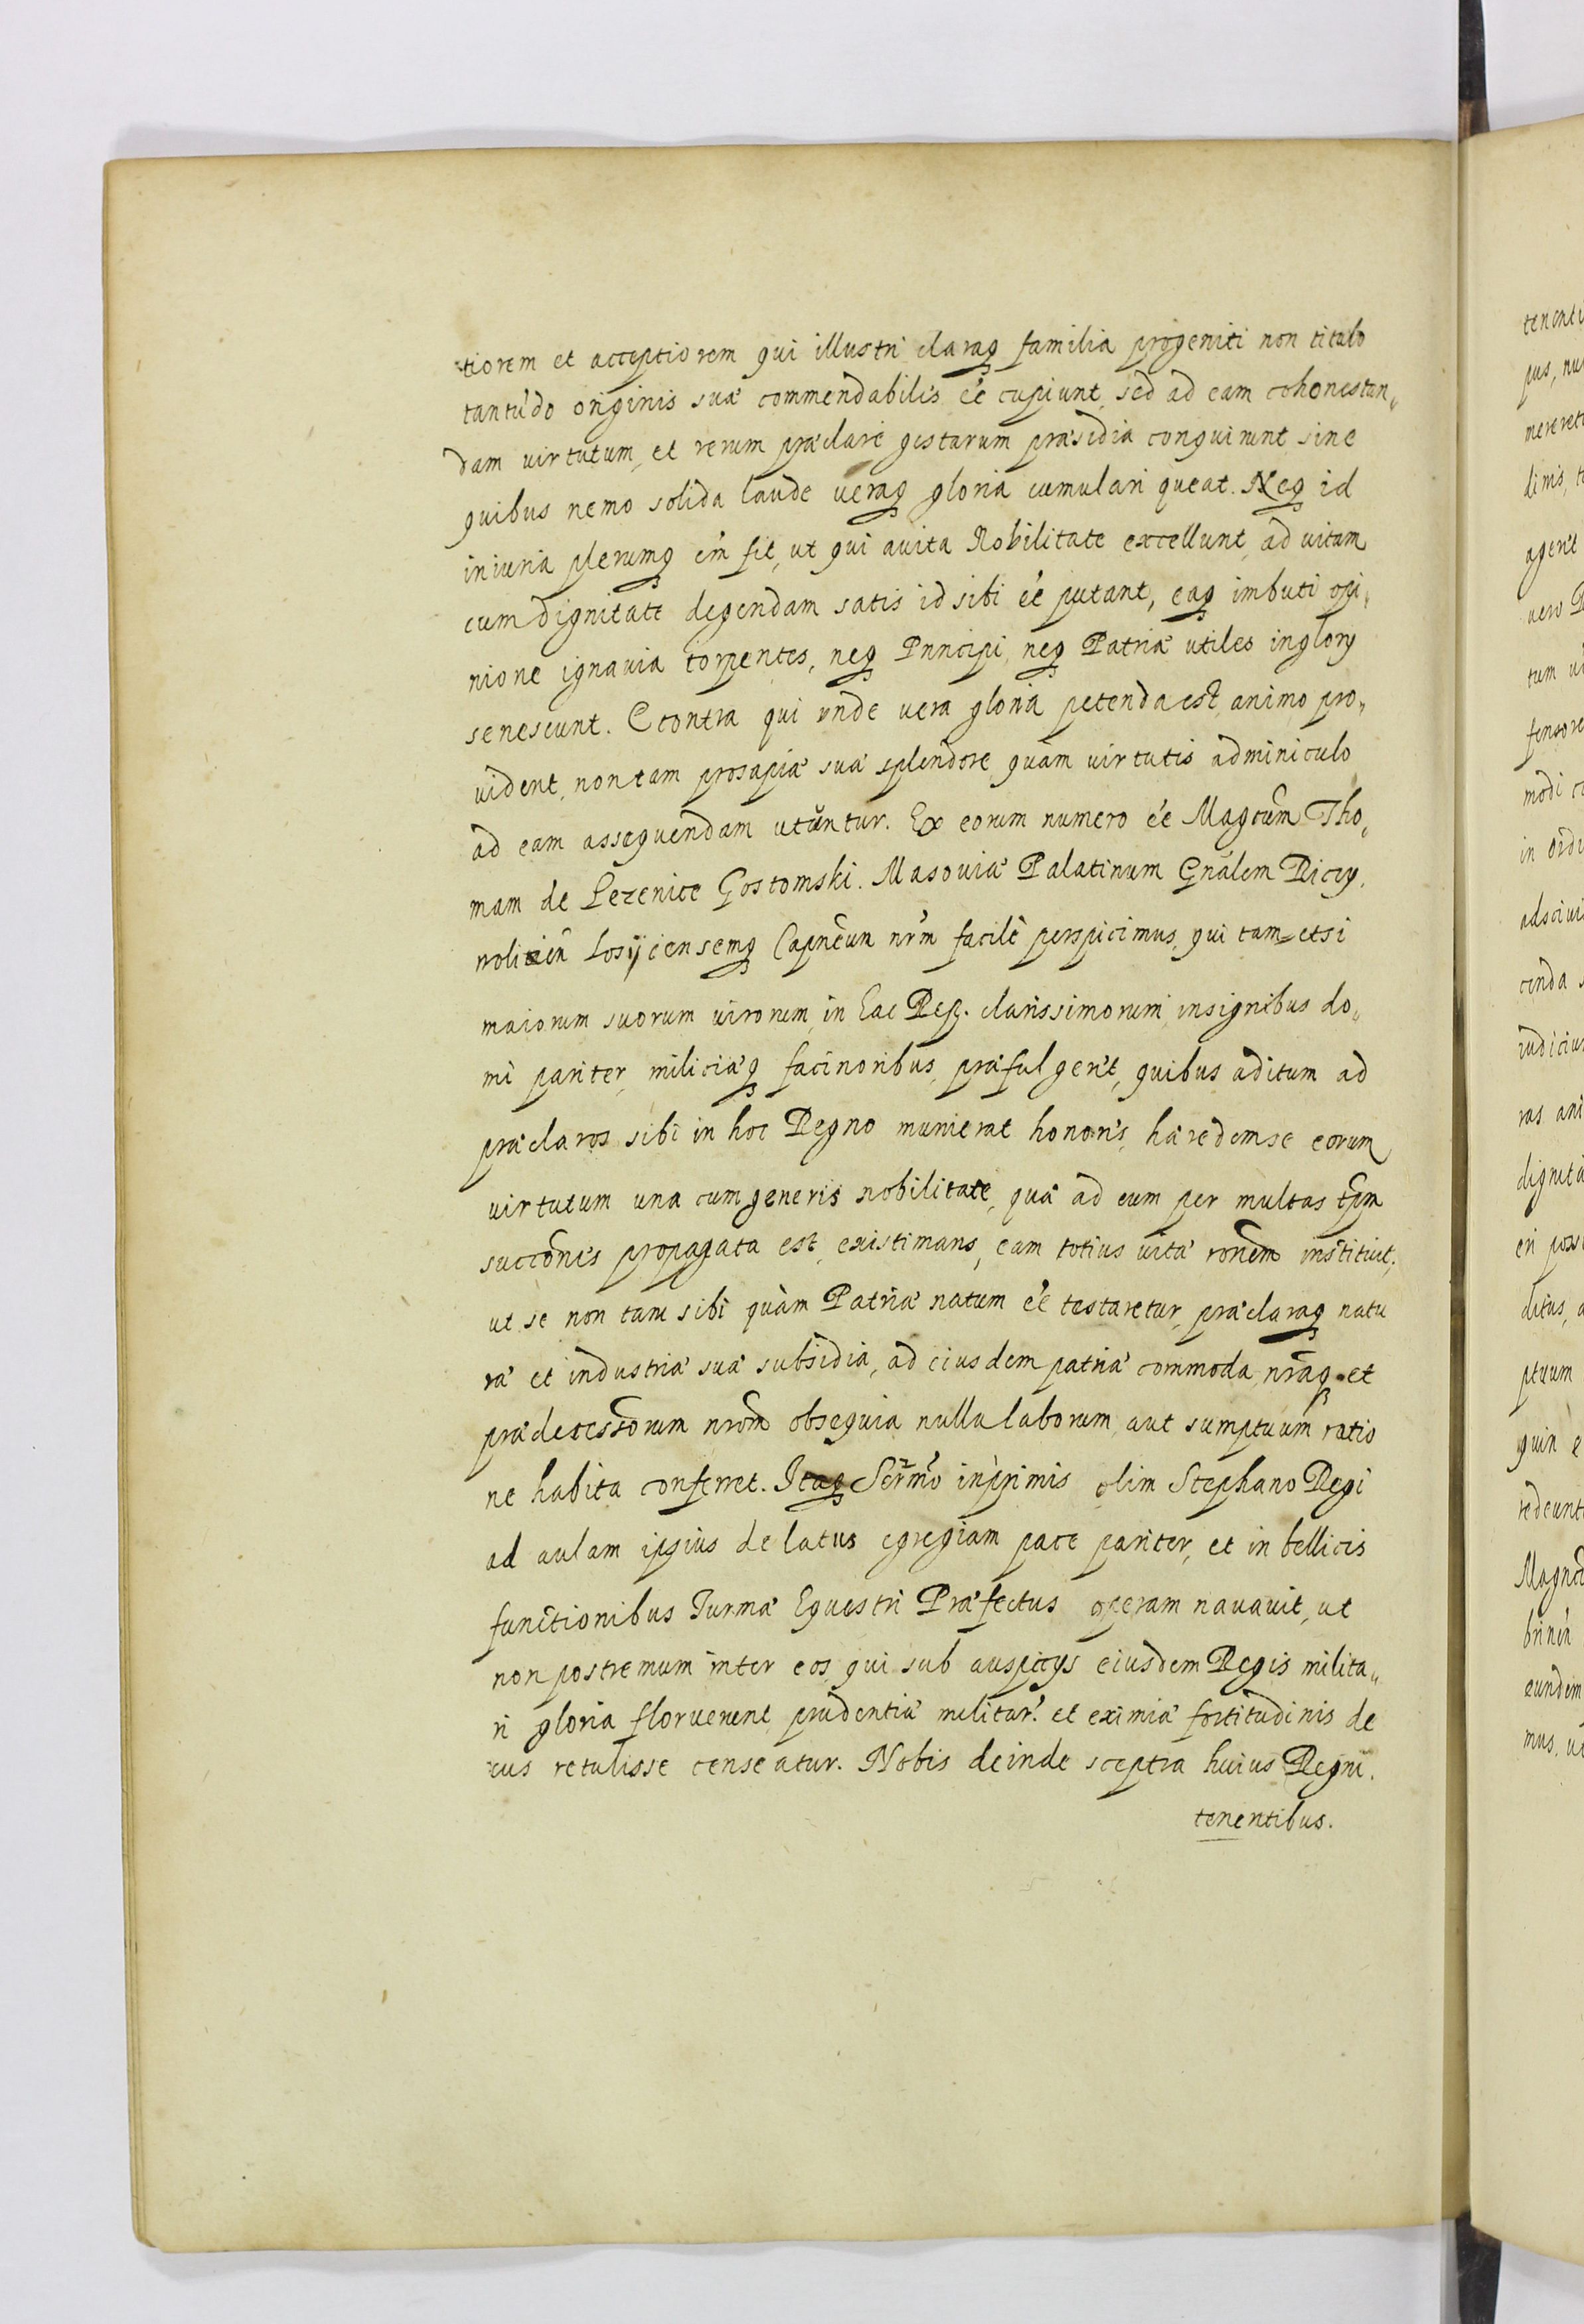 tiorem et acceptiorem qui illustri claraq familia progeniti non titulo
tantũdo originis suæ commendabiles ẽe cupiunt, sed ad eam cohonestan„
dam virtutum, et rerum præclarè gestarum præsidia conquirunt, sine
quibus nemo solida laude veraq gloria cumulari queat. Neq id
iniuria plerumq em̃ fit, ut qui auita Nobilitate excellunt, ad uitam
cum dignitate degendam satis id sibi ẽe putant, eaq imbuti opi„
nione ignauia torpentes, neq Principi, neq Patriæ utiles inglorÿ
senescunt. E contra qui unde uera gloria petenda est, animo pro„
uident, non tam prosapiæ suæ splendore quàm uirtutis adminiculo
ad eam assequendam utuntur. Ex eorum numero ẽe Magcũm Tho„
mam de Lezenice Gostomski. Masouiæ Palatinum Gnãlem Riczy„
woliceñ Losÿcensemq Capnẽum nrm̃ facilè perspicimus, qui tam=etsi
maiorum suorum uirorum, in hac Rep. clarissimorum, insignibus do„
mi pariter, miliciæq facinoribus, præfulgerẽt, quibus aditum ad
præclaros sibi in hoc Regno munierat honores, hæredem se eorum
uirtutum una cum generis nobilitate, quæ ad eum per multas tpm̃
succõnis propagata est, existimans, eam totius uitæ rõnem instituit,
ut se non tam sibi quàm Patriæ natum ẽe testaretur, præclaraq natu
ræ et industriæ suæ subsidia, ad eiusdem patriæ commoda, nrãq et
prædecessorum nrõm obsequia nulla laborum, aut sumptuum ratio
ne habita conferret. Itaq Serm̃o inprimis olim Stephano Regi
ad aulam ipsius delatus egregiam pace pariter, et in bellicis
functionibus Turmæ Equestri Præfectus operam nauauit, ut
non postremum inter eos, qui sub auspicÿs eiusdem Regis milita„
ri gloria floruerunt, prudentiæ militar: et eximiæ fortitudinis de
cus retulisse censeatur. Nobis deinde sceptra huius Regni.
tenentibus.